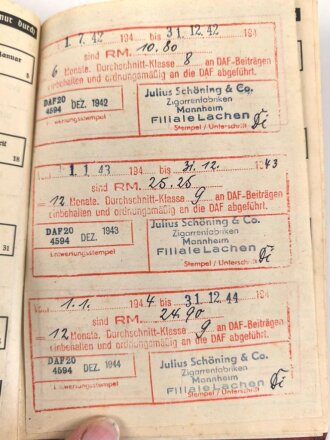 nur durch
anuar
5
18
31
1.7.42 194 bis 31.12.42 194
sind RM. 10,80
6 Monate. Durchschnitt-Klasse 8 an DAF-Beiträgen
einbehalten und ordnungsmäßig an die DAF abgeführt.
DAF20
4594 DEZ. 1942
Entwertungsstempel
Julius Schöning & Co.
Zigarrenfabriken
Mannheim
Filiale Lachen
Stempel / Unterschrift
1.1.43 194 bis 31.12.43
sind RM. 25.25
=12 Monate. Durchschnitt-Klasse 9 an DAF-Beiträgen
einbehalten und ordnungsmäßig an die DAF abgeführt.
DAF20
4594 DEZ. 1943
Entwertungsstempel
Julius Schöning & Co.
Zigarrenfabriken
Mannheim
Filiale Lachen
Stempel / Unterschrift
Vom 1.1. 1944 bis 31.12.44 194
sind RM. 24.90
=12 Monate. Durchschnitt-Klasse 9 an DAF-Beiträgen
einbehalten und ordnungsmäßig an die DAF abgeführt.
DAF20
4594 DEZ. 1944
Entwertungsstempel
Julius Schöning & Co.
Zigarrenfabriken
Mannheim
Filiale Lachen
Stempel / Unterschrift